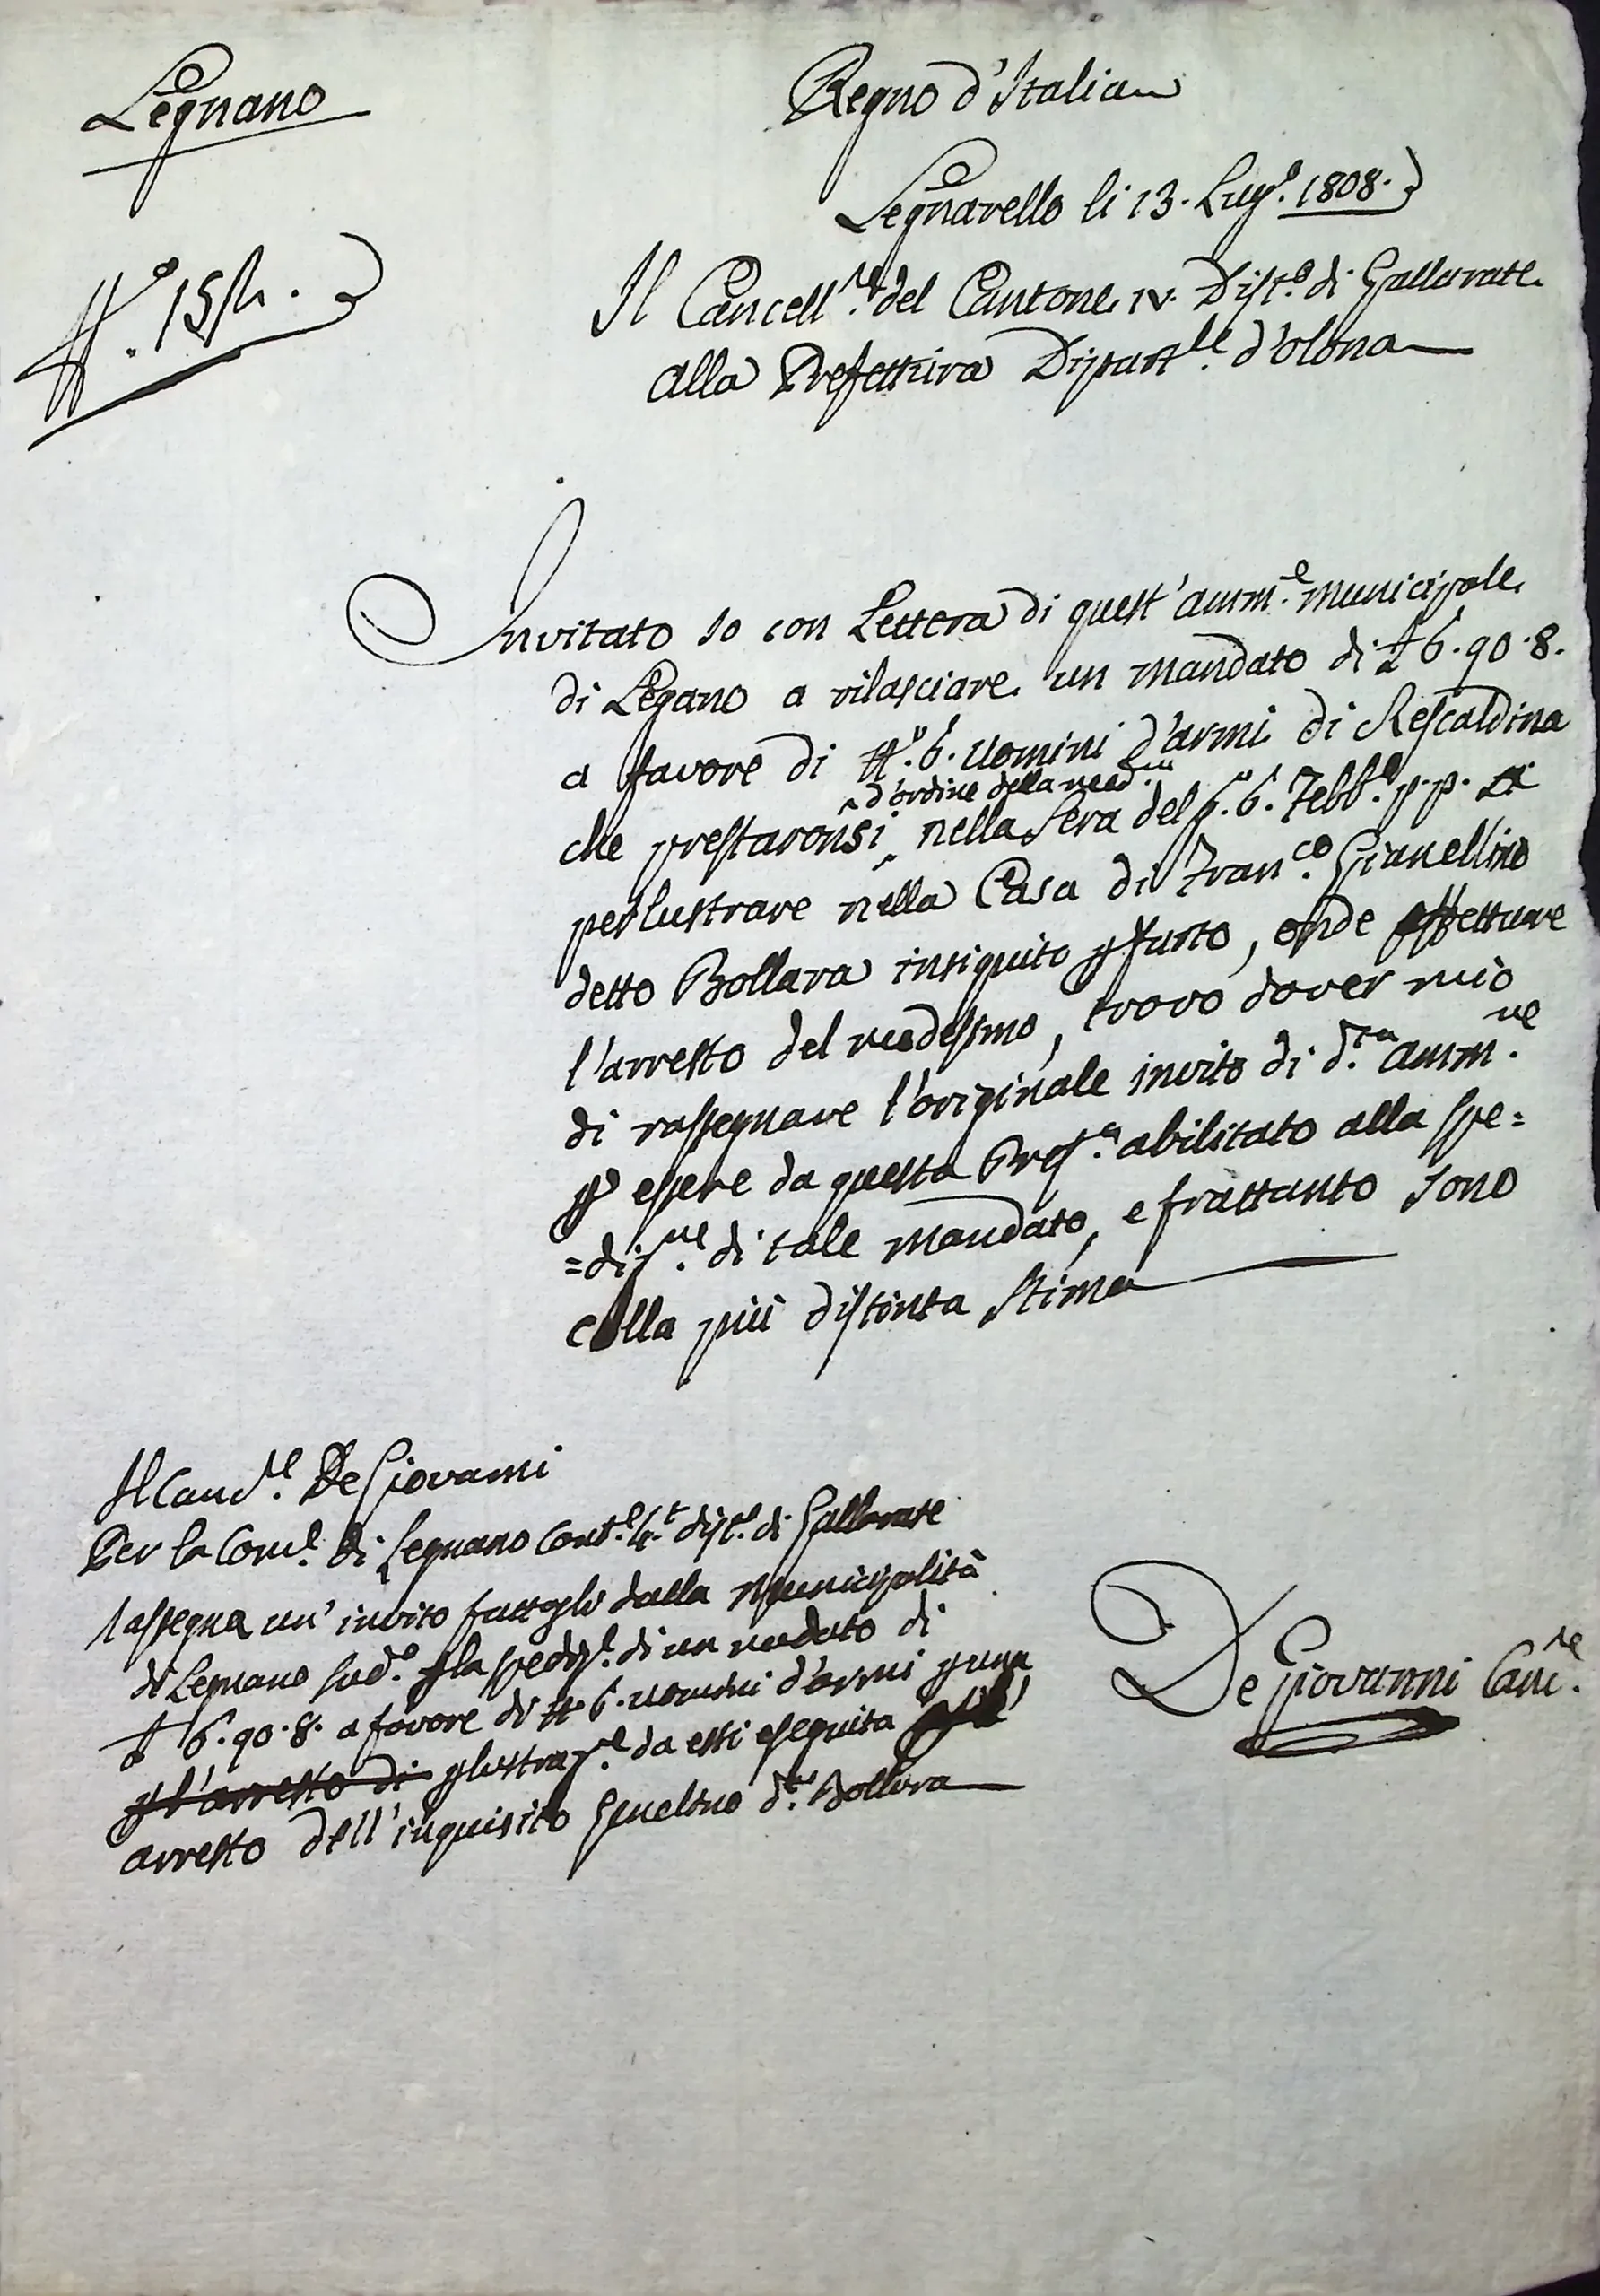 Legnano
Regno d'Italia
Legnarello li 13. Lug.o 1808.
N.o
Il Cancell.re del Cantone IV. Dist.o di Gallarate
alla Prefettura Dipart.le d'Olona
Invitato io con Lettera di quest'Amm.e Municipale
di Legano a rilasciare un mandato di £ 6.90.8.
a favore di N.o 6. Uomini d'armi di Rescaldina
^ d'ordine della med.ma
che prestaronsi ^ nella Sera del g.o 6. Febb.o p.p. a
perlustrare nella Casa di Fran.co Gianellino
detto Bollara insiquito p furto, onde effettuare
l'arresto del medesimo, trovo dover mio
di rassegnare l'originale invito di d.ta Amm.ne
p essere da questa Pref.a abilitato alla spe=
=diz.ne di tale mandato, e frattanto sono
colla più distinta stima
Il Canc.re De Giovanni
Per la Com.e di Legnano Cant.e 4.t dist.o di Gallarate
rassegna un'invito fattogli dalla Municipalità
di Legnano sud.o p la spediz.e di un mandato di
£ 6.90.8. a favore di N 6. uomini d'armi p una
p l'arresto di plustraz.e da essi eseguita
arresto dell'inquisito Gianelino d.to Bollara
De Giovanni Canc.re